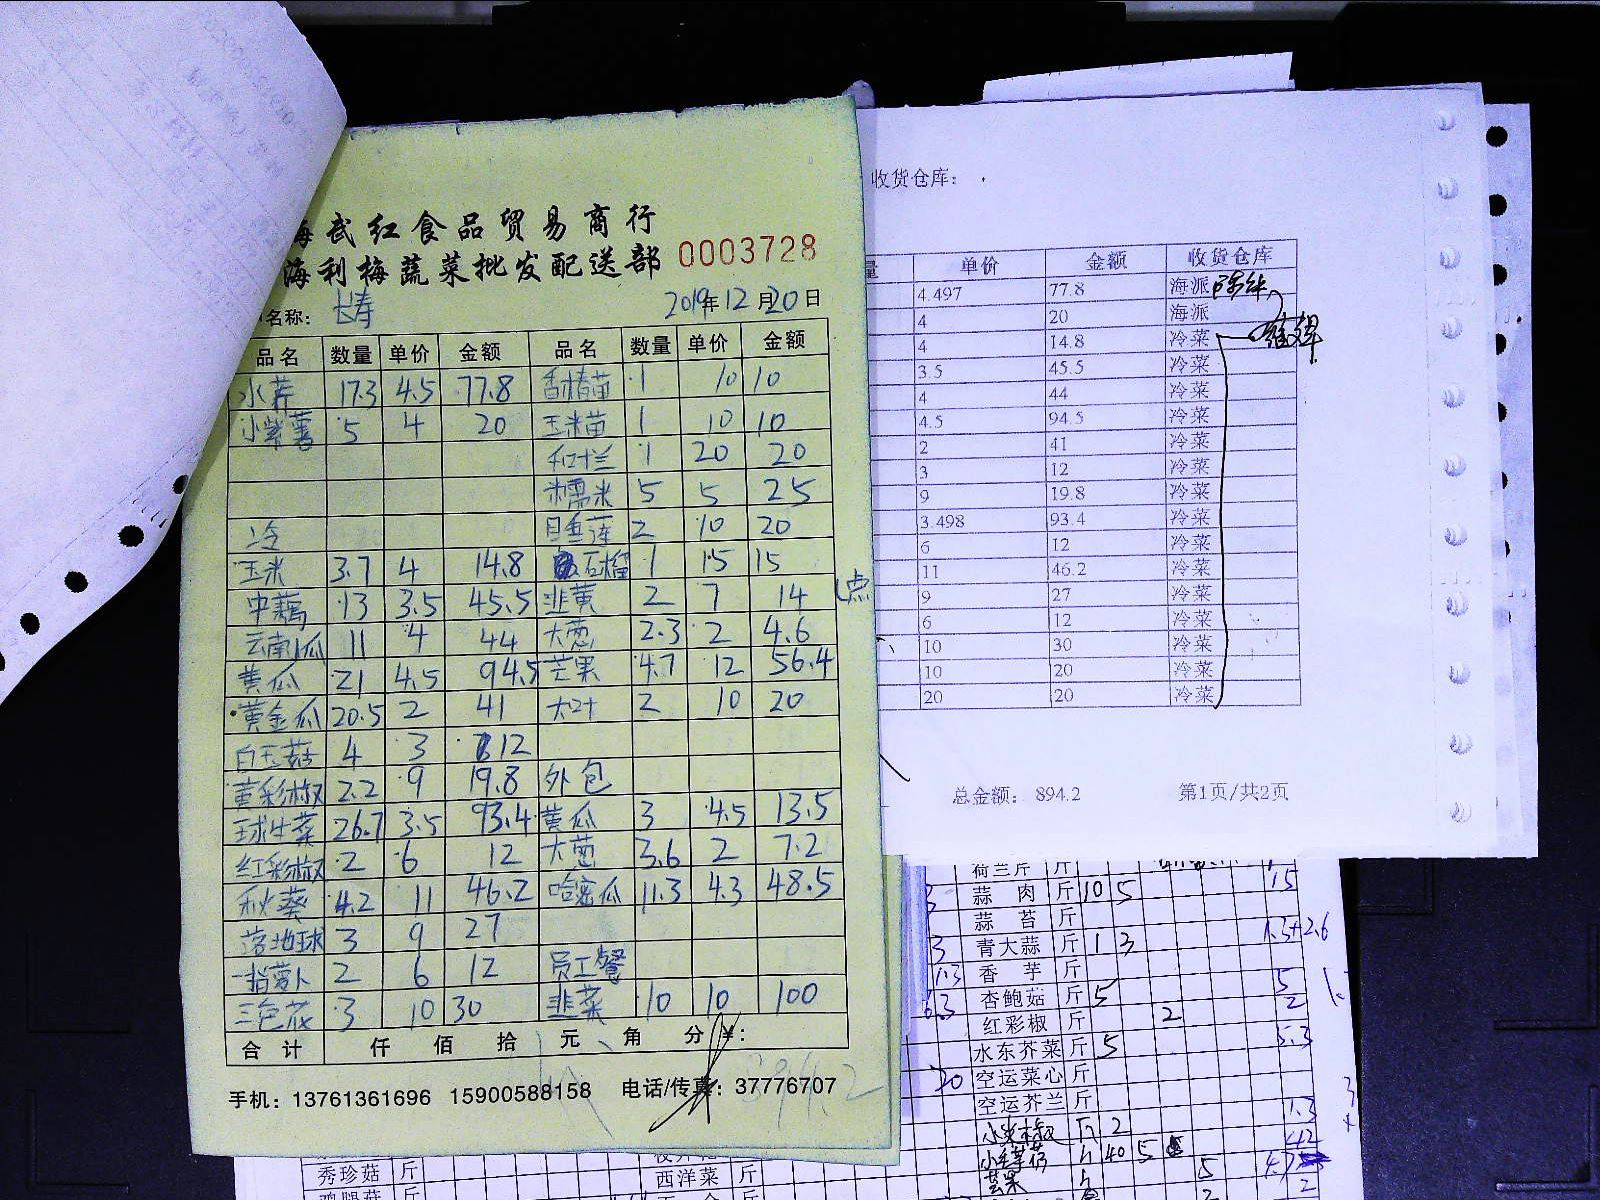 海武红食品贸易商行
海利梅蔬菜批发配送部 0003728
名称: 长寿 2019年12月20日
品名 数量 单价 金额 品名 数量 单价 金额
水芹 17.3 4.5 77.8 香椿苗 1 10 10
小紫薯 5 4 20 玉米苗 1 10 10
1 20 20
糯米 5 5 25
冷 睡莲 2 10 20
玉米 3.7 4 14.8 石榴 1 15 15
中藕 13 3.5 45.5 韭黄 2 7 14 点
云南小瓜 11 4 44 大葱 2.3 2 4.6
黄瓜 21 4.5 94.5 芒果 4.7 12 56.4
黄金瓜 20.5 2 41 大叶 2 10 20
白玉菇 4 3 12
黄彩椒 2.2 9 19.8 外包
球生菜 26.7 3.5 93.4 黄瓜 3 4.5 13.5
红彩椒 2 6 12 大葱 3.6 2 7.2
秋葵 4.2 11 46.2 哈密瓜 11.3 4.3 48.5
落地球 3 9 27
一指萝卜 2 6 12 员工餐
三色花 3 10 30 韭菜 10 10 100
合计 仟 佰 拾 元 角 分 ¥:
894.2
手机: 13761361696 15900588158 电话/传真: 37776707
收货仓库:
量 单价 金额 收货仓库
4.497 77.8 海派
4 20 海派
4 14.8 冷菜
3.5 45.5 冷菜
4 44 冷菜
4.5 94.5 冷菜
2 41 冷菜
3 12 冷菜
9 19.8 冷菜
3.498 93.4 冷菜
6 12 冷菜
11 46.2 冷菜
9 27 冷菜
6 12 冷菜
10 30 冷菜
10 20 冷菜
20 20 冷菜
总金额: 894.2 第1页/共2页
荷兰芹 斤
3 蒜肉 斤 10 5 15
蒜苔 斤
3 青大蒜 斤 1 3 1.3+2.6
1.3 香芋 斤
6.3 杏鲍菇 斤 5 5
红彩椒 斤 2 2
水东芥菜 斤 5 5.3
20 空运菜心 斤
空运芥兰 斤 1.3
小米椒 斤 2
40 5
芒果 5
秀珍菇 斤 西洋菜 斤
鸡腿菇 斤